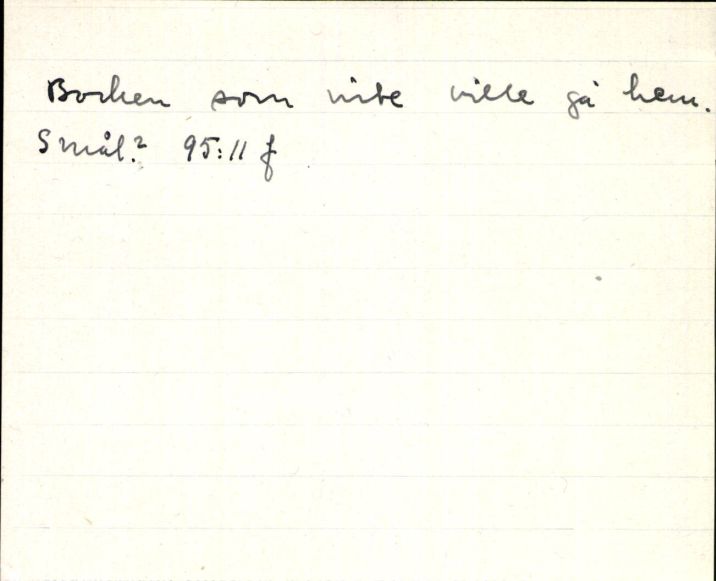 Bocken som inte ville gå hem.
Smål.? 95:11 f